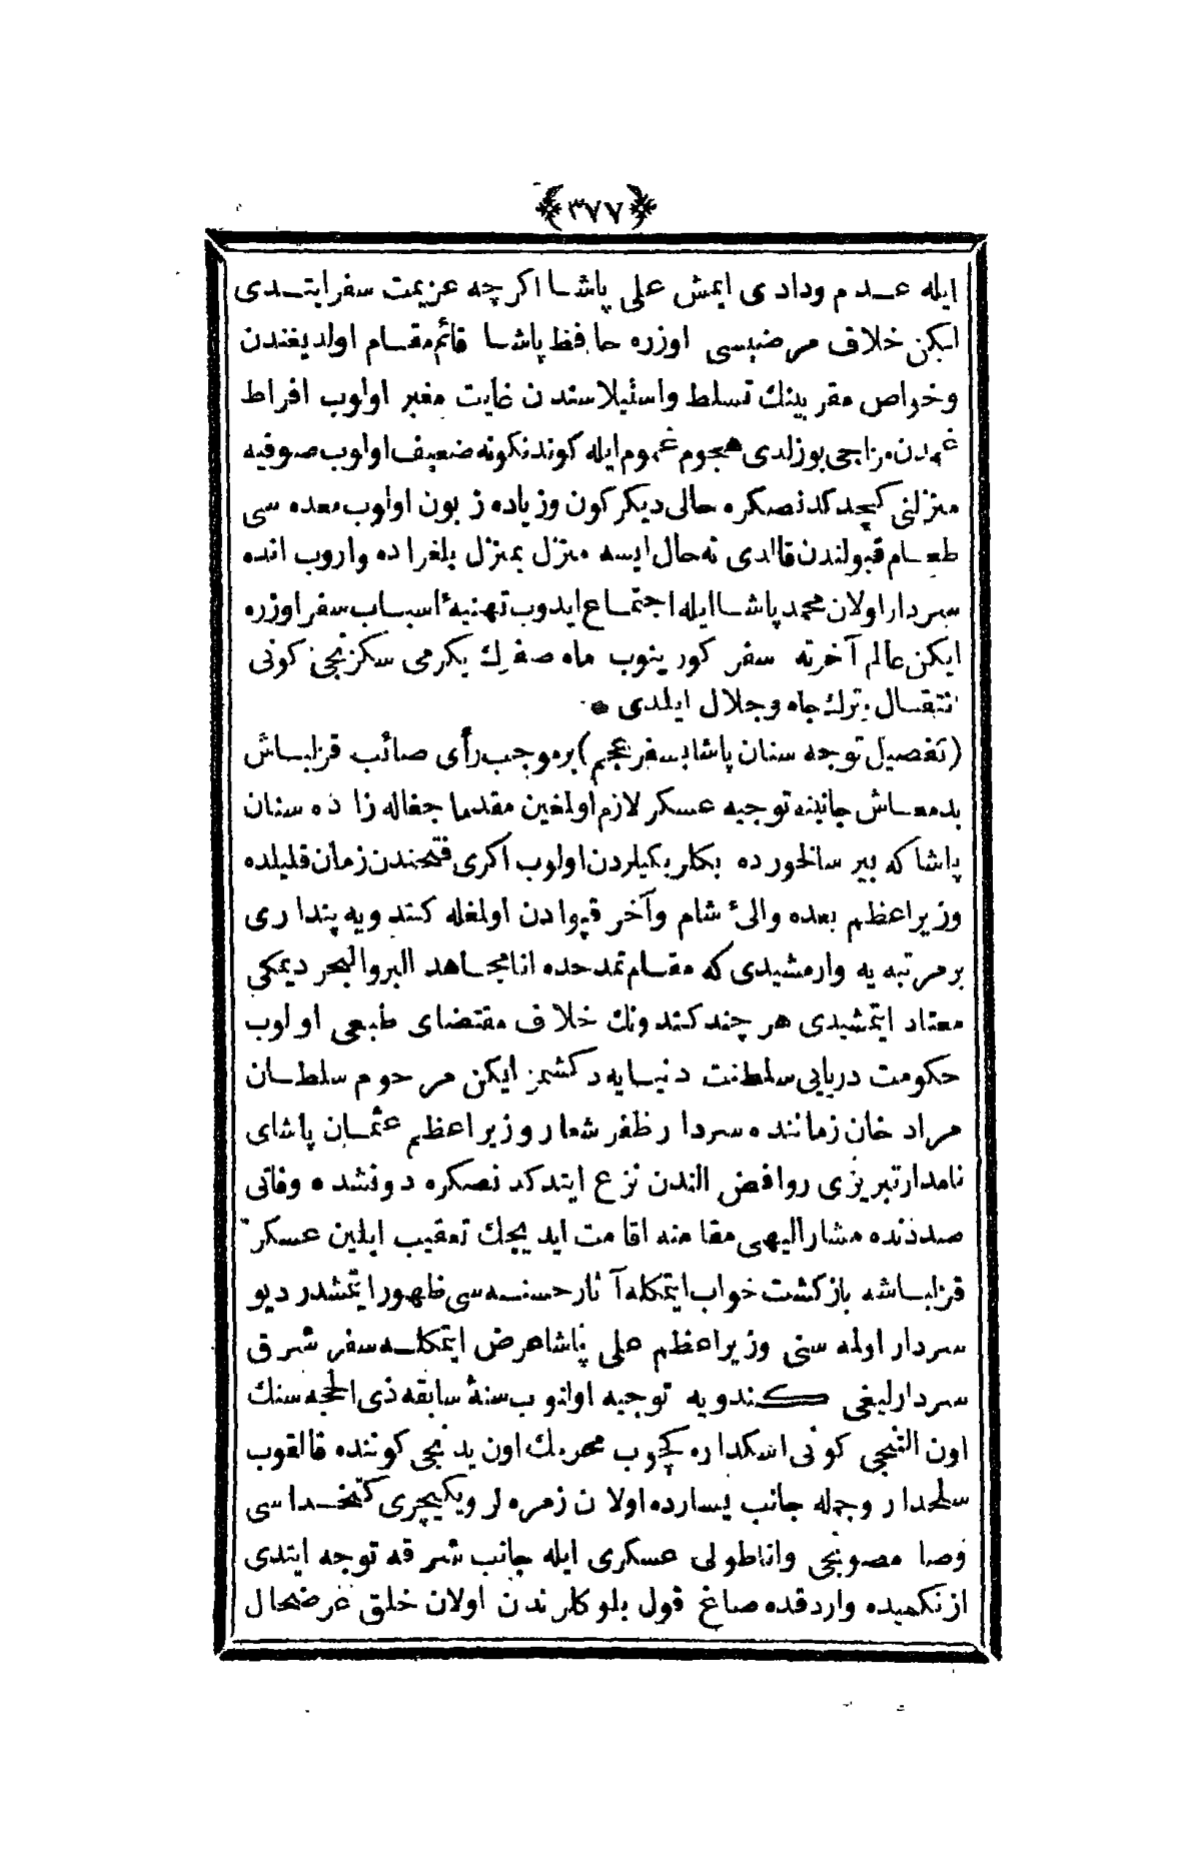 ﴿٣٧٧﴾
ایله عدم ودادی ایمش علی پاشا اکرچه عزیمت سفر ایتدی
لیکن خلاف مرضیسی اوزره حافظ پاشا قائم‌مقام اولدیغندن
وخواص مقربینك تسلط واستیلاسندن غایت مغبر اولوب افراط
غمدن مزاجی بوزلدی هجوم غموم ایله کوندنکونه ضعیف اولوب صوفیه
منزلنی کچدکدنصکره حالی دیکرکون وزیاده زبون اولوب معده سی
طعام قبولندن قالدی نه حال ایسه منزل بمنزل بلغراده واروب انده
سردار اولان محمد پاشا ایله اجتماع ایدوب تهنیهٔ اسباب سفر اوزره
ایکن عالم آخرته سفر کورینوب ماه صفرك یکرمی سکزنجی کونی
انتقال وترك جاه وجلال ایلدی •
(تفصیل توجه سنان پاشا بسفر عجم) برموجب رأی صائب قزلباش
بدمعاش جانبنه توجیه عسکر لازم اولمغین مقدما جغاله زاده سنان
پاشا که پیر سالخورده بکلربکیلردن اولوب اکری فتحندن زمان قلیلده
وزیراعظم بعده والیٔ شام وآخر قپودان اولمغله کندویه پنداری
برمرتبه یه وارمشیدی که مقام تمدحده انا مجاهد البر والبحر دیمکی
معتاد ایتمشیدی هر چند کندونك خلاف مقتضای طبعی اولوب
حکومت دریایی سلطنت دنیایه دکشمز ایکن مرحوم سلطان
مراد خان زماننده سردار ظفرشعار وزیراعظم عثمان پاشای
نامدار تبریزی روافض الندن نزع ایتدکدنصکره دونشده وفاتی
صددنده مشارالیهی مقامنه اقامت ایدیجك تعقیب ایلین عسکر
قزلباشه بازکشت خواب ایتمکله آثار حسنه سی ظهور ایتمشدر دیو
سردار اولمه سنی وزیراعظم علی پاشا عرض ایتمکله سفر شرق
سردارلیغی کندویه توجیه اولنوب سنهٔ سابقه ذی الحجه سنك
اون التنجی کونی اسکداره کچوب محرمك اون یدنجی کوننده قالقوب
سلحدار وجمله جانب یسارده اولان زمره لر ویکیچری کتخداسی
وصامصونجی واناطولی عسکری ایله جانب شرقه توجه ایتدی
ازنکمیده واردقده صاغ قول بلوکلرندن اولان خلق عرضحال